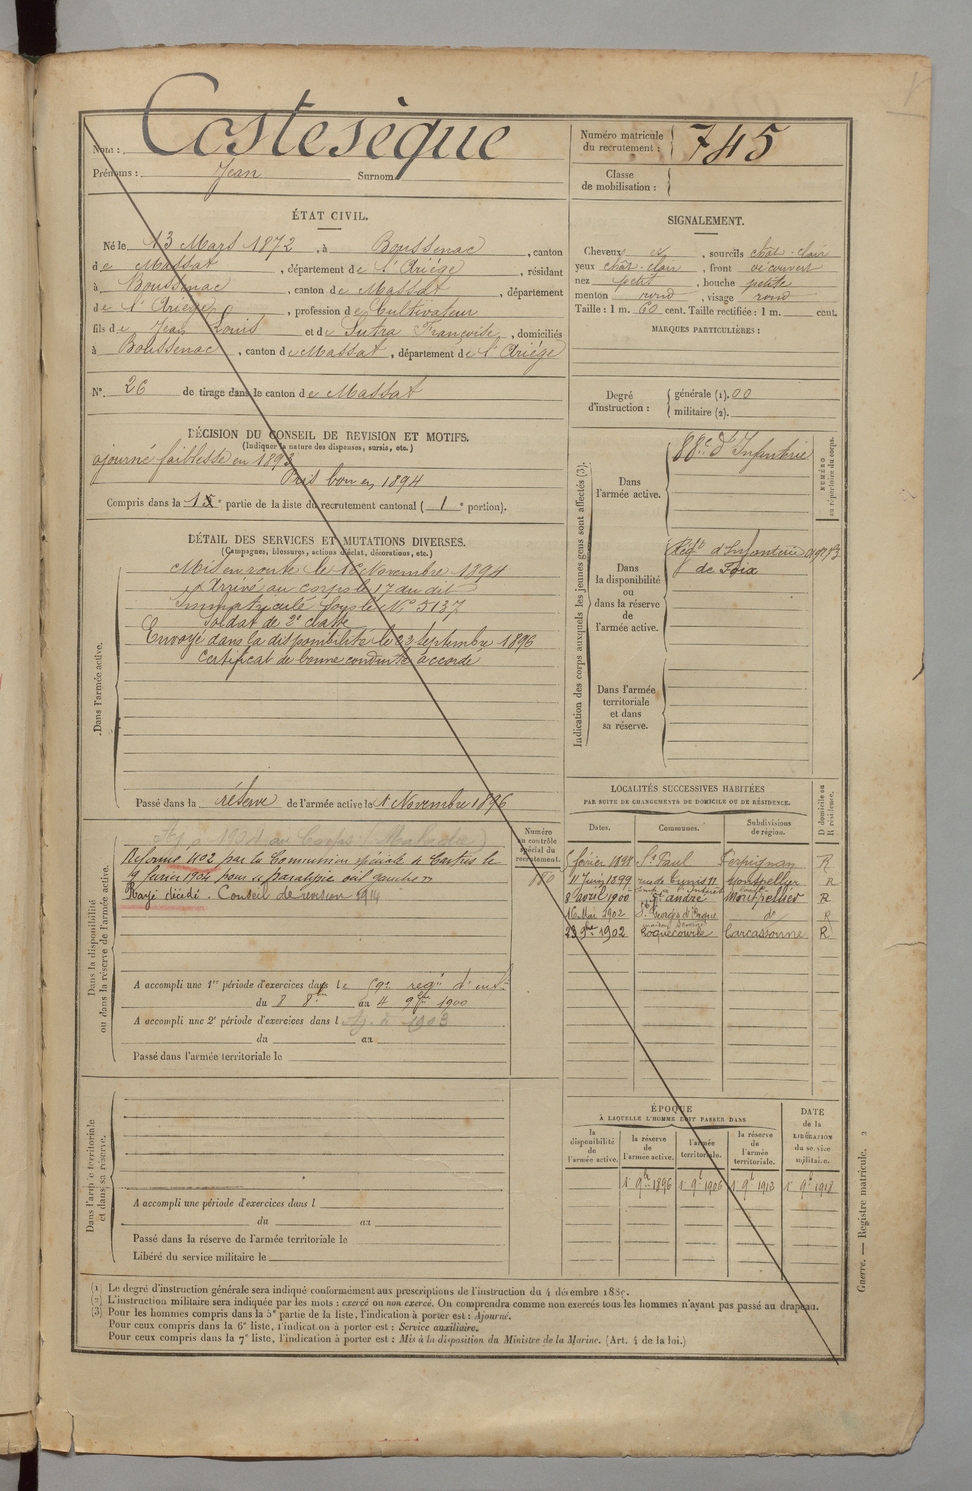 Nom : Costesèque
Prénoms : Jean Surnom
Numéro matricule du recrutement : 745
Classe de mobilisation :
ÉTAT CIVIL.
Né le 13 Mars 1872, à Boussenac, canton
de Massat, département de l'Ariége, résidant
à Boussenac, canton de Massat, département
de l'Ariége, profession de Cultivateur
fils de Jean Louis et de Sutra Françoise, domiciliés
à Boussenac, canton de Massat, département de l'Ariége
N°. 26 de tirage dans le canton de Massat
SIGNALEMENT.
Cheveux et, sourcils chât-clair
yeux chât-clair, front découvert
nez petit, bouche petite
menton rond, visage rond
Taille : 1 m. 60 cent. Taille rectifiée : 1 m. cent.
MARQUES PARTICULIÈRES :
Degré d'instruction : générale (1). 00
militaire (2).
DÉCISION DU CONSEIL DE REVISION ET MOTIFS.
(Indiquer la nature des dispenses, sursis, etc.)
ajourné faiblesse en 1893
Pris bon en 1894
Compris dans la 1e partie de la liste du recrutement cantonal ( 1e portion).
DÉTAIL DES SERVICES ET MUTATIONS DIVERSES.
(Campagnes, blessures, actions d'éclat, décorations, etc.)
Dans l'armée active.
Mis en route le 16 Novembre 1894
Arrivé au corps le 17 du dit
Immatriculé sous le N° 5137
Soldat de 2e classe
Envoyé dans la disponibilité le 23 Septembre 1896
Certificat de bonne conduite accordé
Passé dans la réserve de l'armée active le 1 Novembre 1896
Indication des corps auxquels les jeunes gens sont affectés (3).
NUMÉRO au répertoire du corps.
Dans l'armée active.
88e d'Infanterie
Dans la disponibilité ou dans la réserve de l'armée active.
Régt d'Infanterie
de Foix
Dans l'armée territoriale et dans sa réserve.
LOCALITÉS SUCCESSIVES HABITÉES
PAR SUITE DE CHANGEMENTS DE DOMICILE OU DE RÉSIDENCE.
D domicile ou R résidence.
Dates. Communes. Subdivisions de région.
février 1898 St Paul Perpignan R
11 Juin 1899 rue de Tunis 11 Montpellier R
8 avril 1900 St andré Montpellier R
16 Mai 1902 St Georges d'Orques do R
23 9bre 1902 Roquecourbe Carcassonne R
Dans la disponibilité ou dans la réserve de l'armée active.
Numéro au contrôle spécial du recrutement.
Réformé No2 par la Commission spéciale de Castres le
19 février 1904 pour paralysie œil gauche
Rayé décédé. Conseil de revision 1914
A accompli une 1re période d'exercices dans le 59e regt d'inf
du 8 8bre au 4 9bre 1900
A accompli une 2e période d'exercices dans l Aj. à 1903
du au
Passé dans l'armée territoriale le
Dans l'armée territoriale et dans sa réserve.
A accompli une période d'exercices dans l
du au
Passé dans la réserve de l'armée territoriale le
Libéré du service militaire le
ÉPOQUE
À LAQUELLE L'HOMME DOIT PASSER DANS
la disponibilité de l'armée active.
la réserve de l'armée active.
l'armée territoriale.
la réserve de l'armée territoriale.
DATE de la LIBÉRATION du service militaire.
1r 9bre 1896 1r 9bre 1906 1r 9bre 1912 1r 9bre 1918
(1) Le degré d'instruction générale sera indiqué conformément aux prescriptions de l'instruction du 4 décembre 1889.
(2) L'instruction militaire sera indiquée par les mots : exercé ou non exercé. On comprendra comme non exercés tous les hommes n'ayant pas passé au drapeau.
(3) Pour les hommes compris dans la 5e partie de la liste, l'indication à porter est : Ajourné.
Pour ceux compris dans la 6e liste, l'indication à porter est : Service auxiliaire.
Pour ceux compris dans la 7e liste, l'indication à porter est : Mis à la disposition du Ministre de la Marine. (Art. 4 de la loi.)
Guerre. — Registre matricule. 2